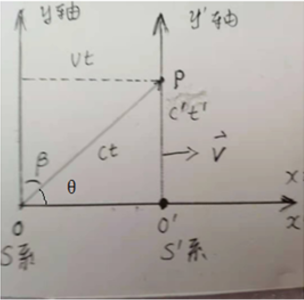 y轴 y'轴
vt
P
c't'
β ct V
θ
x'
O O' x
S系 S'系